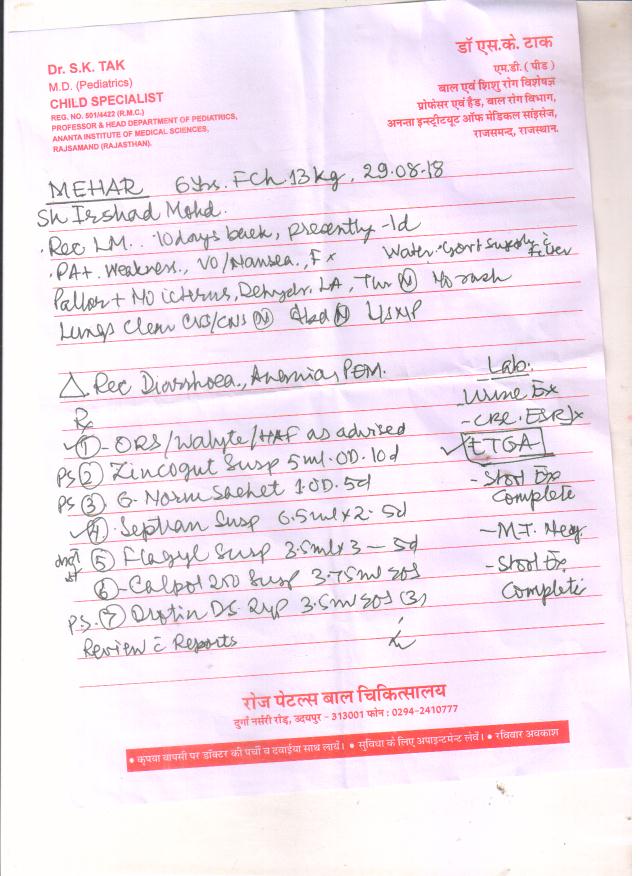 Dr. S.K. TAK
M.D. (Pediatrics)
CHILD SPECIALIST
REG. NO. 501/4422 (R.M.C.)
PROFESSOR & HEAD DEPARTMENT OF PEDIATRICS,
ANANTA INSTITUTE OF MEDICAL SCIENCES,
RAJSAMAND (RAJASTHAN).
डॉ एस.के. टाक
एम.डी. ( पीड )
बाल एवं शिशु रोग विशेषज्ञ
प्रोफेसर एवं हैड, बाल रोग विभाग,
अनन्ता इन्स्टीट्यूट ऑफ मेडिकल साइंसेज,
राजसमन्द, राजस्थान.
MEHAR 6 Yrs. FCh. 13 kg, 29.08.18
Sh Irshad Mohd.
Rec LM.. 10 days back, presently - 1d
PA+. Weakness., VO/Nausea., F x Water. Govt supply
Pallor + No icterus, Dehydr. LA, No rash
Lungs Clear CVS/CNS (N) Abd (N)
△ Rec Diarrhoea., Anemia, PEM.
Rx
✓ ① - ORS/Walyte/HAF as advised
PS ② Zincogut Susp 5ml. OD. 10d
PS ③ G. Norm Sachet 1.OD. 5d
✓ ④. Septran Susp 6.5ml x 2. 5d
⑤ Flagyl Susp 3.5ml x 3 - 5d
⑥ - Calpol 250 Susp 3.75ml sos
P.S. ⑦ Drotin DS. Syp 3.5ml sos (3)
Review c̄ Reports
Lab.
Urine Ex
- CBC. ESR
✓ tTGA
- Stool Ex
Complete
- M.T. Neg.
- Stool Ex.
Complete
रोज पेटल्स बाल चिकित्सालय
दुर्गा नर्सरी रोड़, उदयपुर - 313001 फोन : 0294-2410777
• कृपया वापसी पर डॉक्टर की पर्ची व दवाईयां साथ लावें। • सुविधा के लिए अपाइन्टमेन्ट लेवें। • रविवार अवकाश